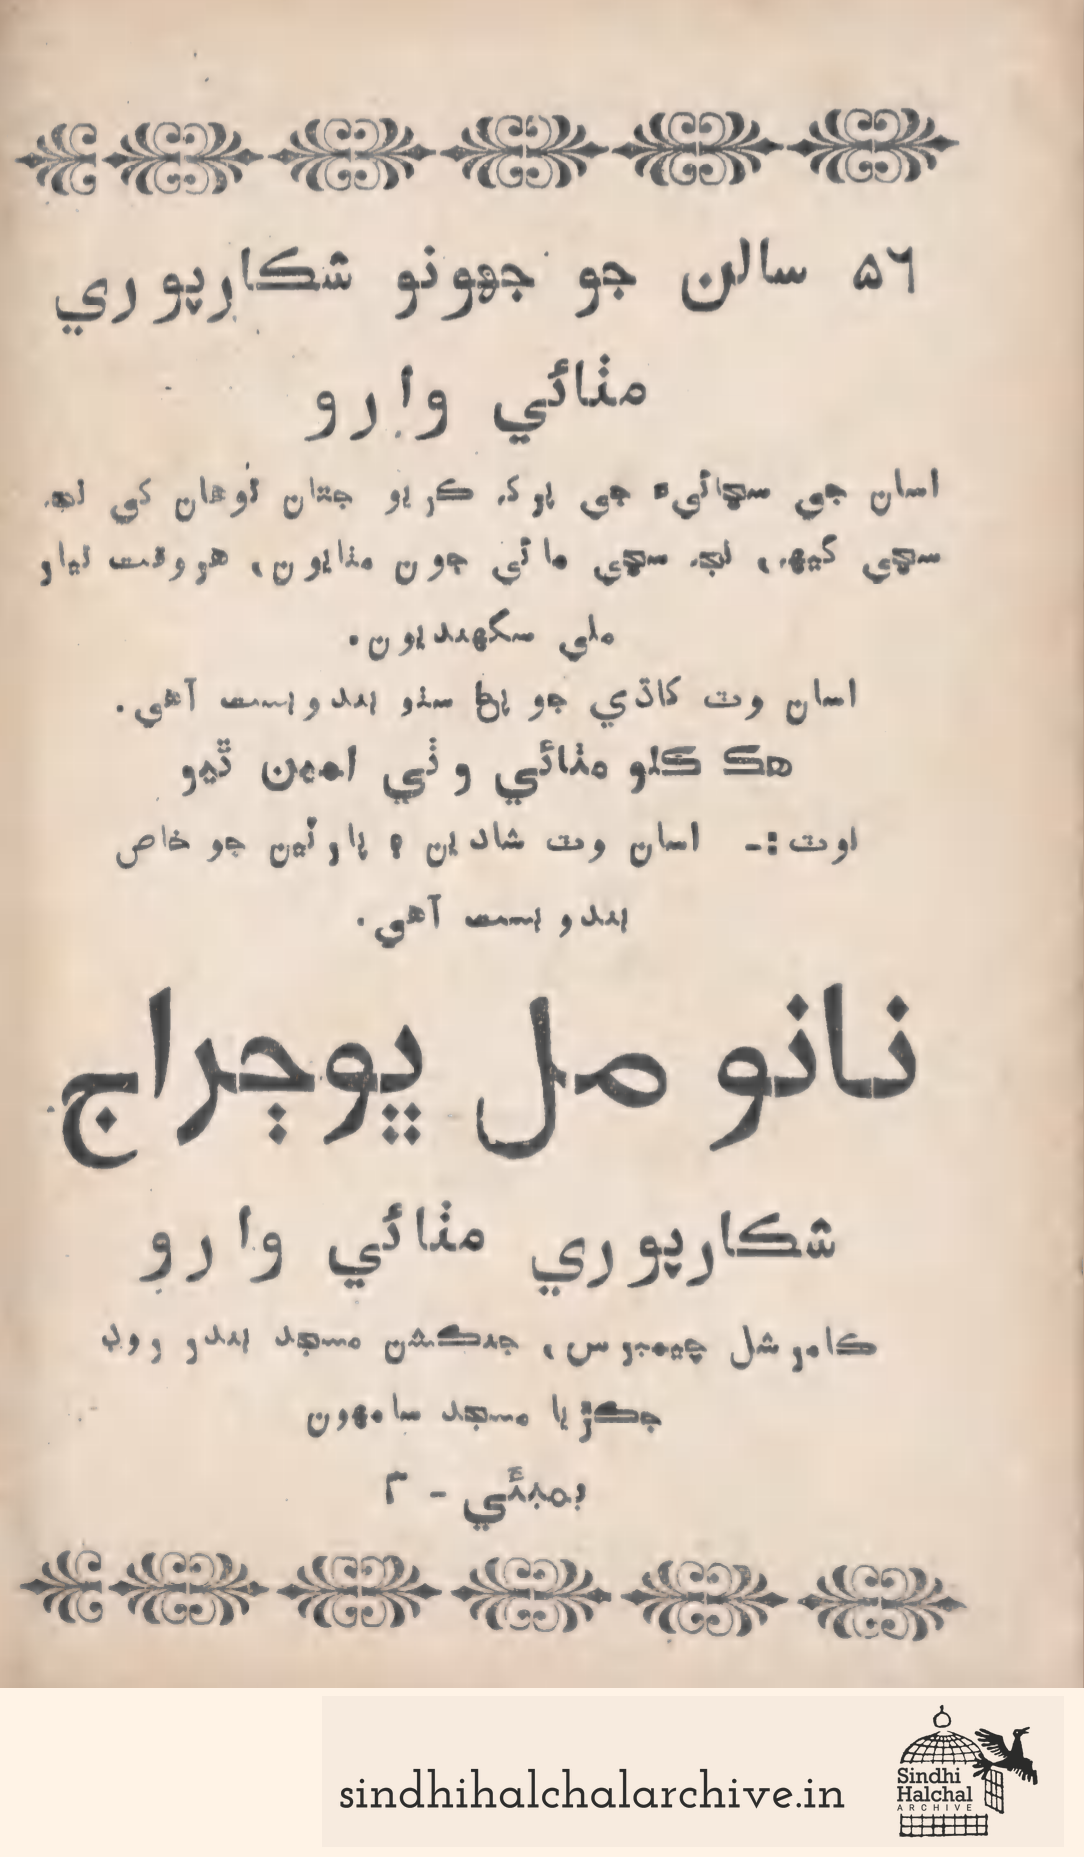 ۵٦ سالن جو جهونو شڪارپوري
مٺائي وارو
اسان جي سچائيءَ جي پرک ڪريو جتان توهان کي نج
سچي گيهه، نج سچي مائي جون مٺايون، هر وقت تيار
ملي سگهنديون.
اسان وٽ کاڌي جو پڻ سٺو بندوبست آهي.
هڪ ڪلو مٺائي وٺي اچڻ ٿيو
نوٽ :- اسان وٽ شادين ۽ پارٽين جو خاص
بندوبست آهي.
نانو مل ڀوڄراج
شڪارپوري مٺائي وارو
ڪامرشل چيمبرس، جنڪشن مسجد بندر روڊ
جڪڙيا مسجد سامهون
بمبئي - ٣
sindhihalchalarchive.in
Sindhi
Halchal
ARCHIVE